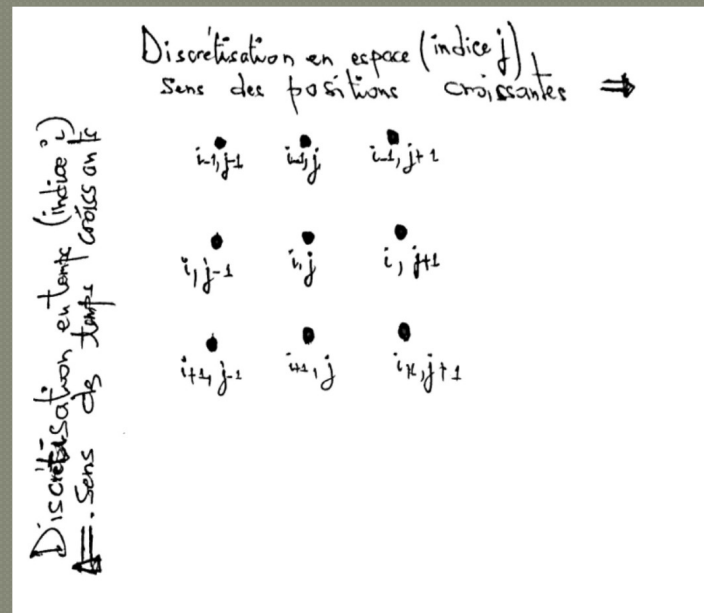 Discrétisation en espace (indice j)
Sens des positions croissantes ⇒
Discrétisation en temps (indice i)
⇐ Sens des temps croissants
i-1,j-1 i-1,j i-1,j+1
i,j-1 i,j i,j+1
i+1,j-1 i+1,j i+1,j+1